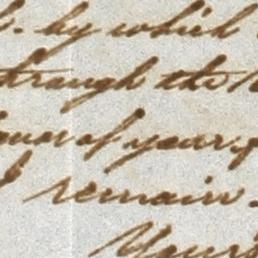 by which
through the
of your
I remain
Yours